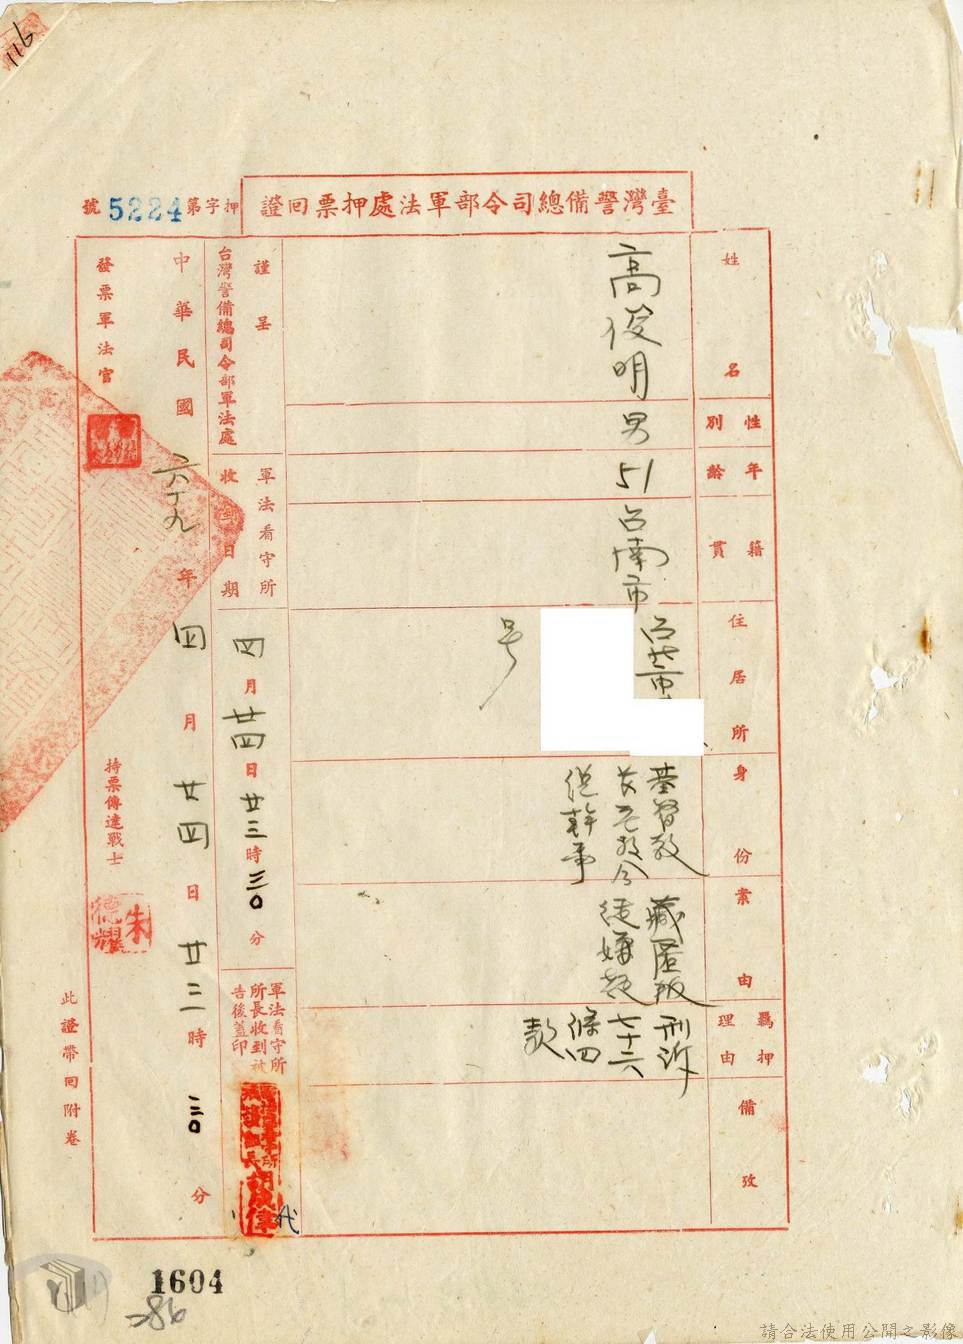 116
臺灣警備總司令部軍法處押票回證
押字第5224號
姓名
高俊明
性別
男
年齡
51
籍貫
台南市
住居所
台北市
号
身份
基督教
長老教会
總幹事
案由
藏匿叛
徒嫌疑
羈押理由
刑訴
七十六
條四
款
備攷
謹呈
台灣警備總司令部軍法處
軍法看守所
收到日期
四月廿四日廿三時三〇分
軍法看守所
所長收到被
告後蓋印
代
中華民國六十九年四月廿四日廿三時三〇分
發票軍法官
持票傳達戰士
朱德耀
此證帶回附卷
1604
286
請合法使用公開之影像